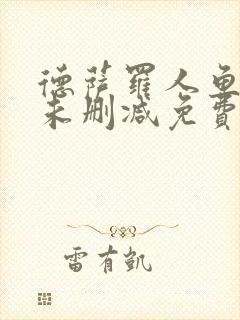 德萨罗人鱼
未删减免费
雷有凯